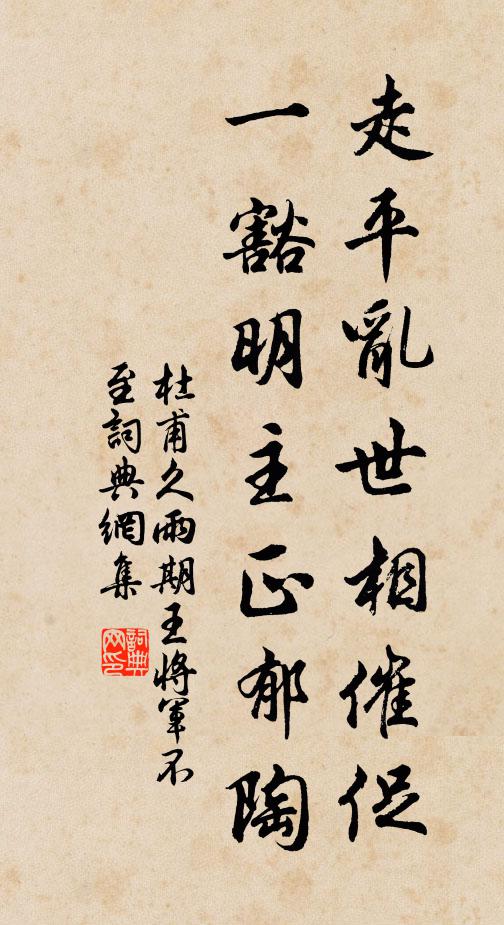 走平亂世相催促
一豁明主正郁陶
杜甫久雨期王將軍不
至詞典網集
詞典
网印